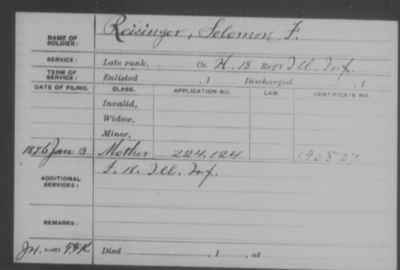 NAME OF SOLDIER: Reisinger, Solomon F.
SERVICE: Late rank, Co. H. 18 Reg't Ill. Inf.
TERM OF SERVICE: Enlisted , 1 Discharged , 1
DATE OF FILING. CLASS. APPLICATION NO. LAW. CERTIFICATE NO.
Invalid,
Widow,
Minor,
1876 Jan 3. Mother 224,124
ADDITIONAL SERVICES: F. 18. Ill. Inf.
REMARKS:
Died , 1 , at